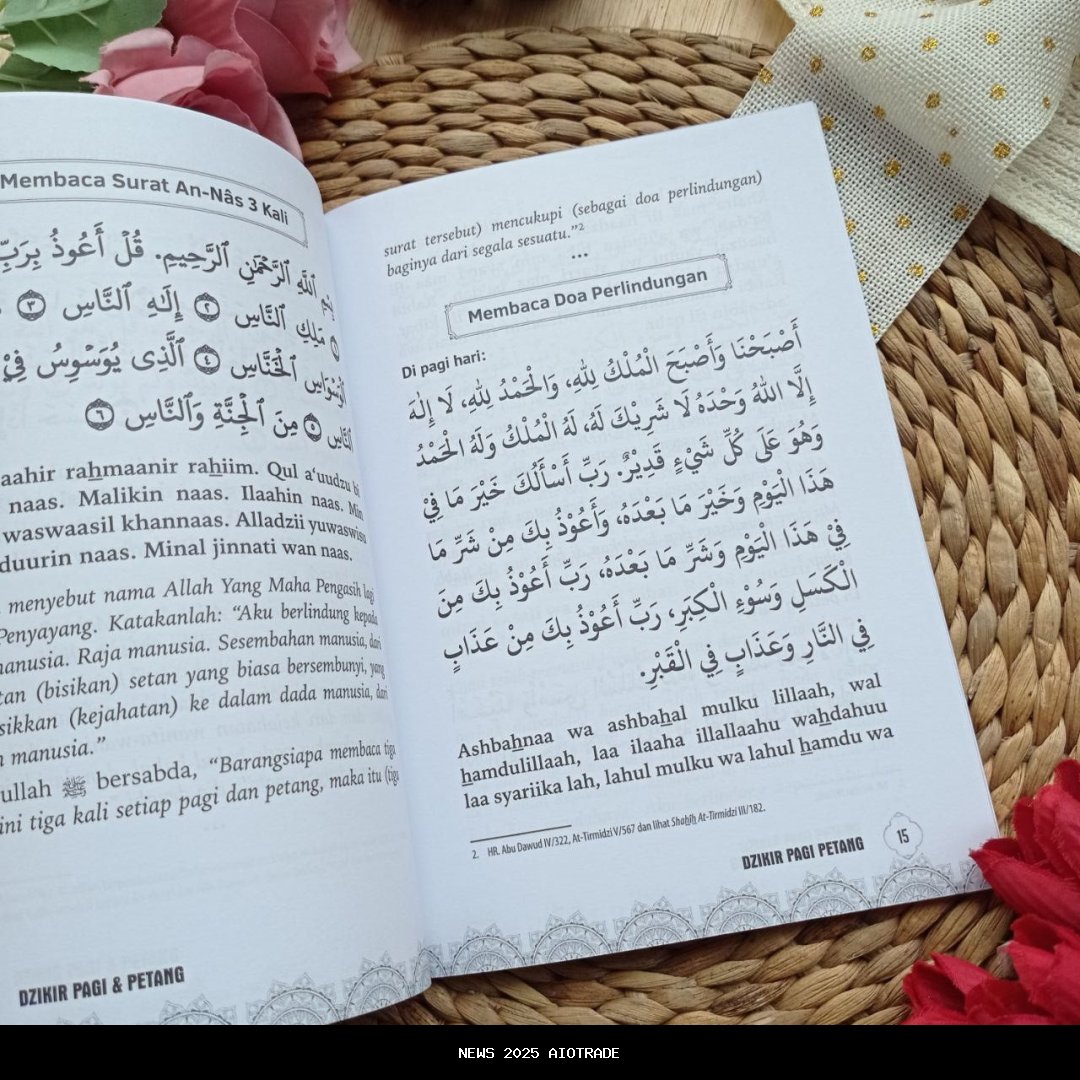 Membaca Surat An-Nâs 3 Kali
اللَّهِ ٱلرَّحْمَٰنِ ٱلرَّحِيمِ. قُلْ أَعُوذُ بِرَبِّ
مَلِكِ ٱلنَّاسِ ٢ إِلَٰهِ ٱلنَّاسِ ٣
ٱلْوَسْوَاسِ ٱلْخَنَّاسِ ٤ ٱلَّذِى يُوَسْوِسُ فِيْ
ٱلنَّاسِ ٥ مِنَ ٱلْجِنَّةِ وَٱلنَّاسِ ٦
rahmaanir rahiim. Qul a'uudzu bi
naas. Malikin naas. Ilaahin naas. Min
waswaasil khannaas. Alladzii yuwaswisu
naas. Minal jinnati wan naas.
menyebut nama Allah Yang Maha Pengasih lagi
Penyayang. Katakanlah: "Aku berlindung kepada
manusia. Raja manusia. Sesembahan manusia, dari
(bisikan) setan yang biasa bersembunyi, yang
(kejahatan) ke dalam dada manusia, dari
manusia."
ﷺ bersabda, "Barangsiapa membaca tiga
ini tiga kali setiap pagi dan petang, maka itu (tiga
DZIKIR PAGI & PETANG
surat tersebut) mencukupi (sebagai doa perlindungan)
baginya dari segala sesuatu."2
•••
Membaca Doa Perlindungan
Di pagi hari:
أَصْبَحْنَا وَأَصْبَحَ الْمُلْكُ لِلهِ، وَالْحَمْدُ لِلهِ، لَا إِلٰهَ
إِلَّا اللهُ وَحْدَهُ لَا شَرِيْكَ لَهُ، لَهُ الْمُلْكُ وَلَهُ الْحَمْدُ
وَهُوَ عَلَى كُلِّ شَيْءٍ قَدِيْرٌ. رَبِّ أَسْأَلُكَ خَيْرَ مَا فِيْ
هَذَا الْيَوْمِ وَخَيْرَ مَا بَعْدَهُ، وَأَعُوْذُ بِكَ مِنْ شَرِّ مَا
فِيْ هَذَا الْيَوْمِ وَشَرِّ مَا بَعْدَهُ، رَبِّ أَعُوْذُ بِكَ مِنَ
الْكَسَلِ وَسُوْءِ الْكِبَرِ، رَبِّ أَعُوْذُ بِكَ مِنْ عَذَابٍ
فِي النَّارِ وَعَذَابٍ فِي الْقَبْرِ.
Ashbahnaa wa ashbahal mulku lillaah, wal
hamdulillaah, laa ilaaha illallaahu wahdahuu
laa syariika lah, lahul mulku wa lahul hamdu wa
2. HR. Abu Dawud IV/322, At-Tirmidzi V/567 dan lihat Shahîh At-Tirmidzi III/182.
DZIKIR PAGI PETANG 15
NEWS 2025 AIOTRADE